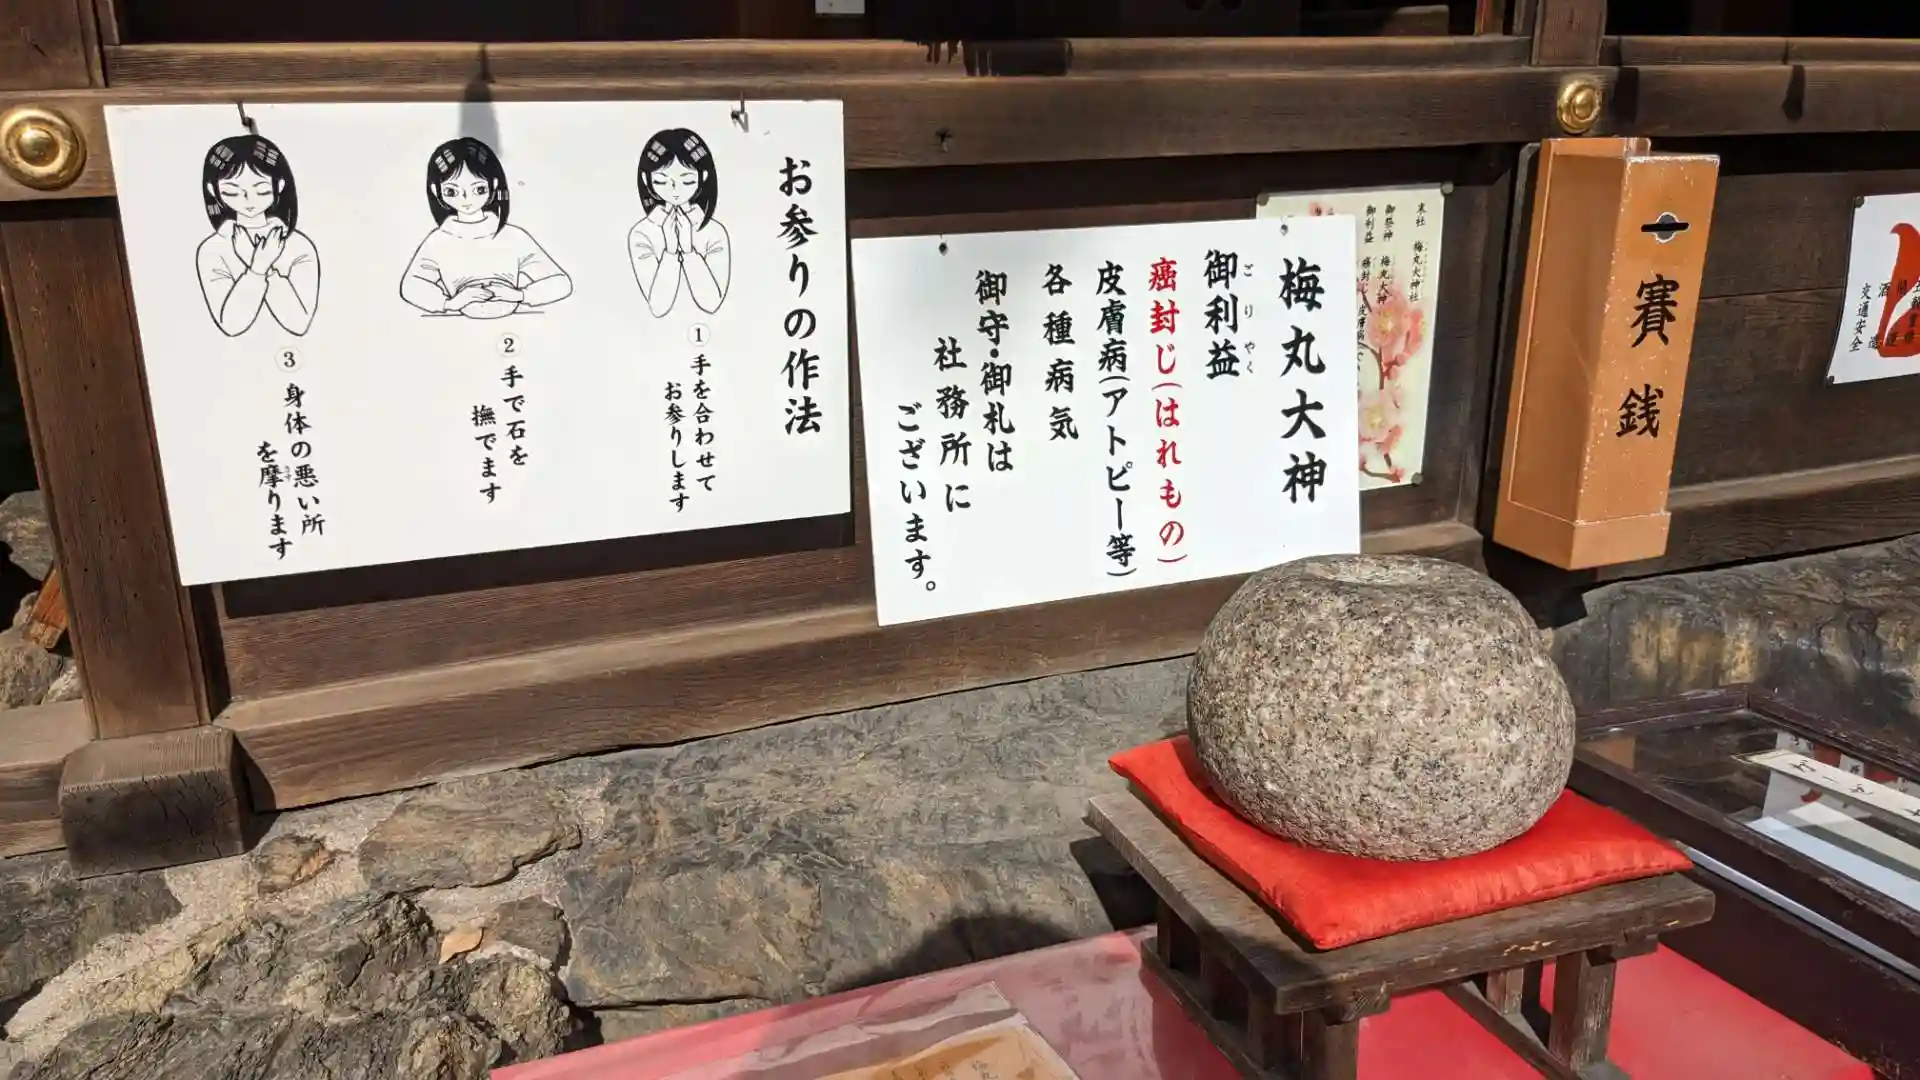 お参りの作法
① 手を合わせて
お参りします
② 手で石を
撫でます
③ 身体の悪い所
を摩ります
梅丸大神
御利益
ごりやく
癌封じ(はれもの)
皮膚病(アトピー等)
各種病気
御守・御札は
社務所に
ございます。
末社 梅丸大神社
御祭神 梅丸大神
御利益 癌封じ 皮膚病
賽銭
交通安全